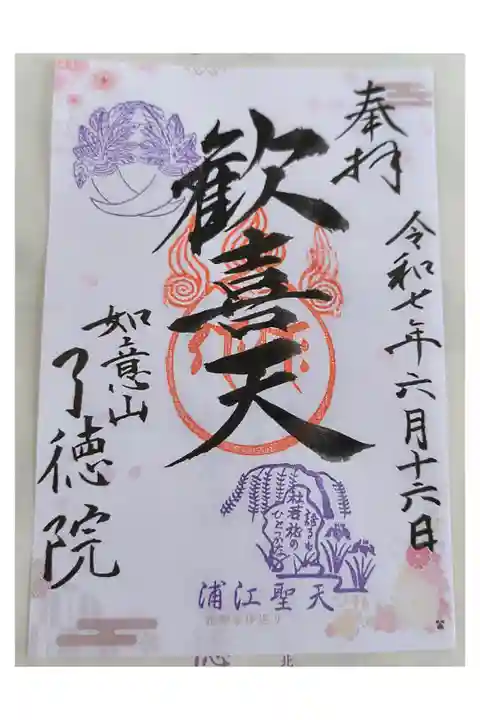 奉拝
令和七年六月十六日
歓喜天
如意山
了徳院
語るも
杜若旅の
ひとつかな
浦江聖天
北